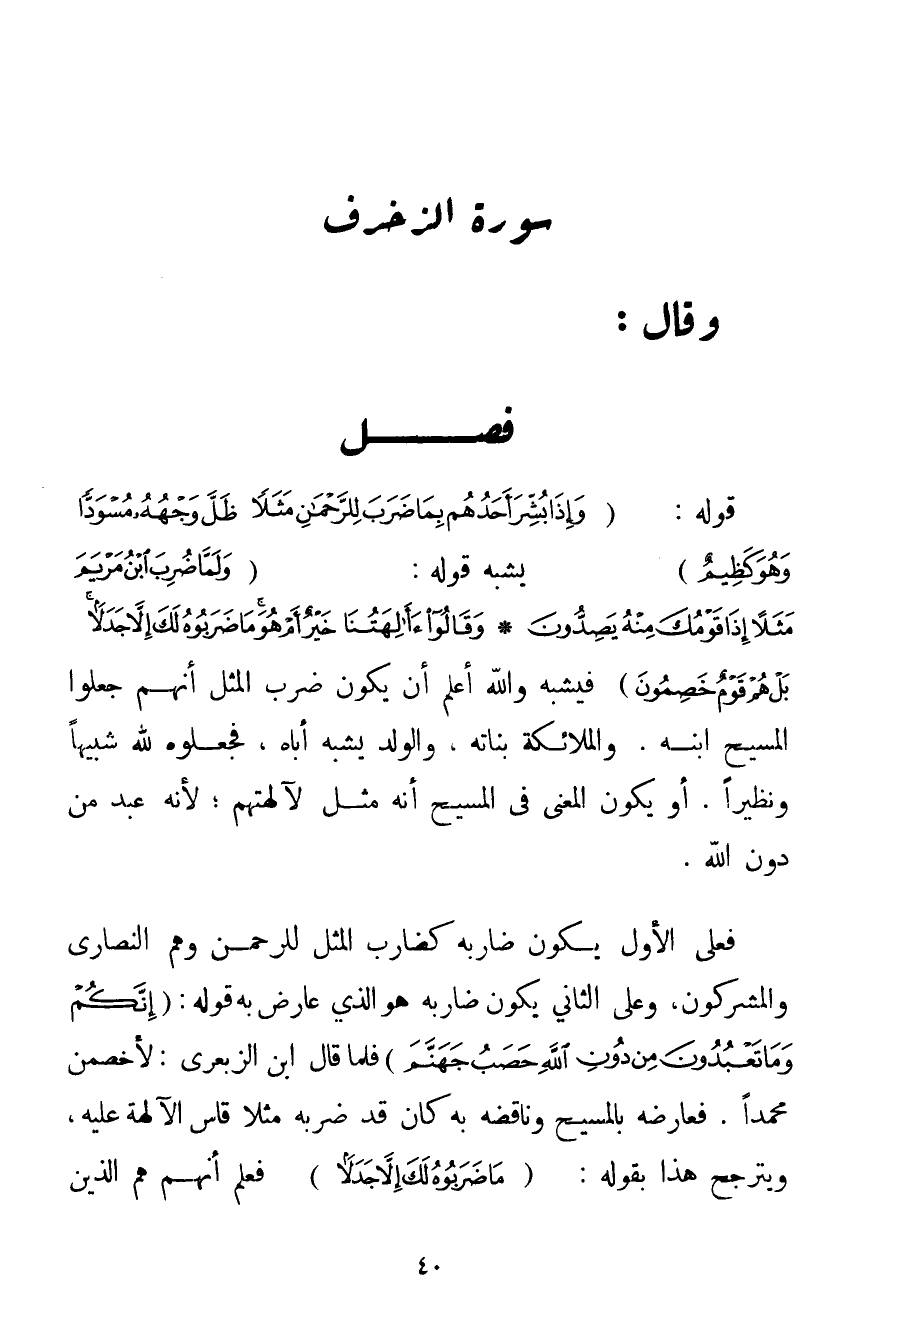 سورة الزخرف
وقال :
فصـــــــل
قوله : ( وَإِذَا بُشِّرَ أَحَدُهُم بِمَا ضَرَبَ لِلرَّحْمَٰنِ مَثَلًا ظَلَّ وَجْهُهُۥ مُسْوَدًّا
وَهُوَ كَظِيمٌ ) يشبه قوله : ( وَلَمَّا ضُرِبَ ٱبْنُ مَرْيَمَ
مَثَلًا إِذَا قَوْمُكَ مِنْهُ يَصِدُّونَ * وَقَالُوٓا۟ ءَأَٰلِهَتُنَا خَيْرٌ أَمْ هُوَ ۚ مَا ضَرَبُوهُ لَكَ إِلَّا جَدَلًۢا ۚ
بَلْ هُمْ قَوْمٌ خَصِمُونَ ) فيشبه والله أعلم أن يكون ضرب المثل أنهـم جعلوا
المسيح ابنـه . والملائكة بناته ، والولد يشبه أباه ، فجعـلوه لله شبيهاً
ونظيراً . أو يكون المعنى فى المسيح أنه مثـل لآلهتهم ؛ لأنه عبد من
دون الله .
فعلى الأول يـكون ضاربه كضارب المثل للرحمـن وهم النصارى
والمشركون، وعلى الثاني يكون ضاربه هو الذي عارض به قوله : ( إِنَّكُمْ
وَمَا تَعْبُدُونَ مِن دُونِ ٱللَّهِ حَصَبُ جَهَنَّمَ ) فلما قال ابن الزبعرى : لأخصمن
محمداً . فعارضه بالمسيح وناقضه به كان قد ضربه مثلا قاس الآلهة عليه ،
ويترجح هذا بقوله : ( مَا ضَرَبُوهُ لَكَ إِلَّا جَدَلًۢا ) فعلم أنهـم هم الذين
٤٠